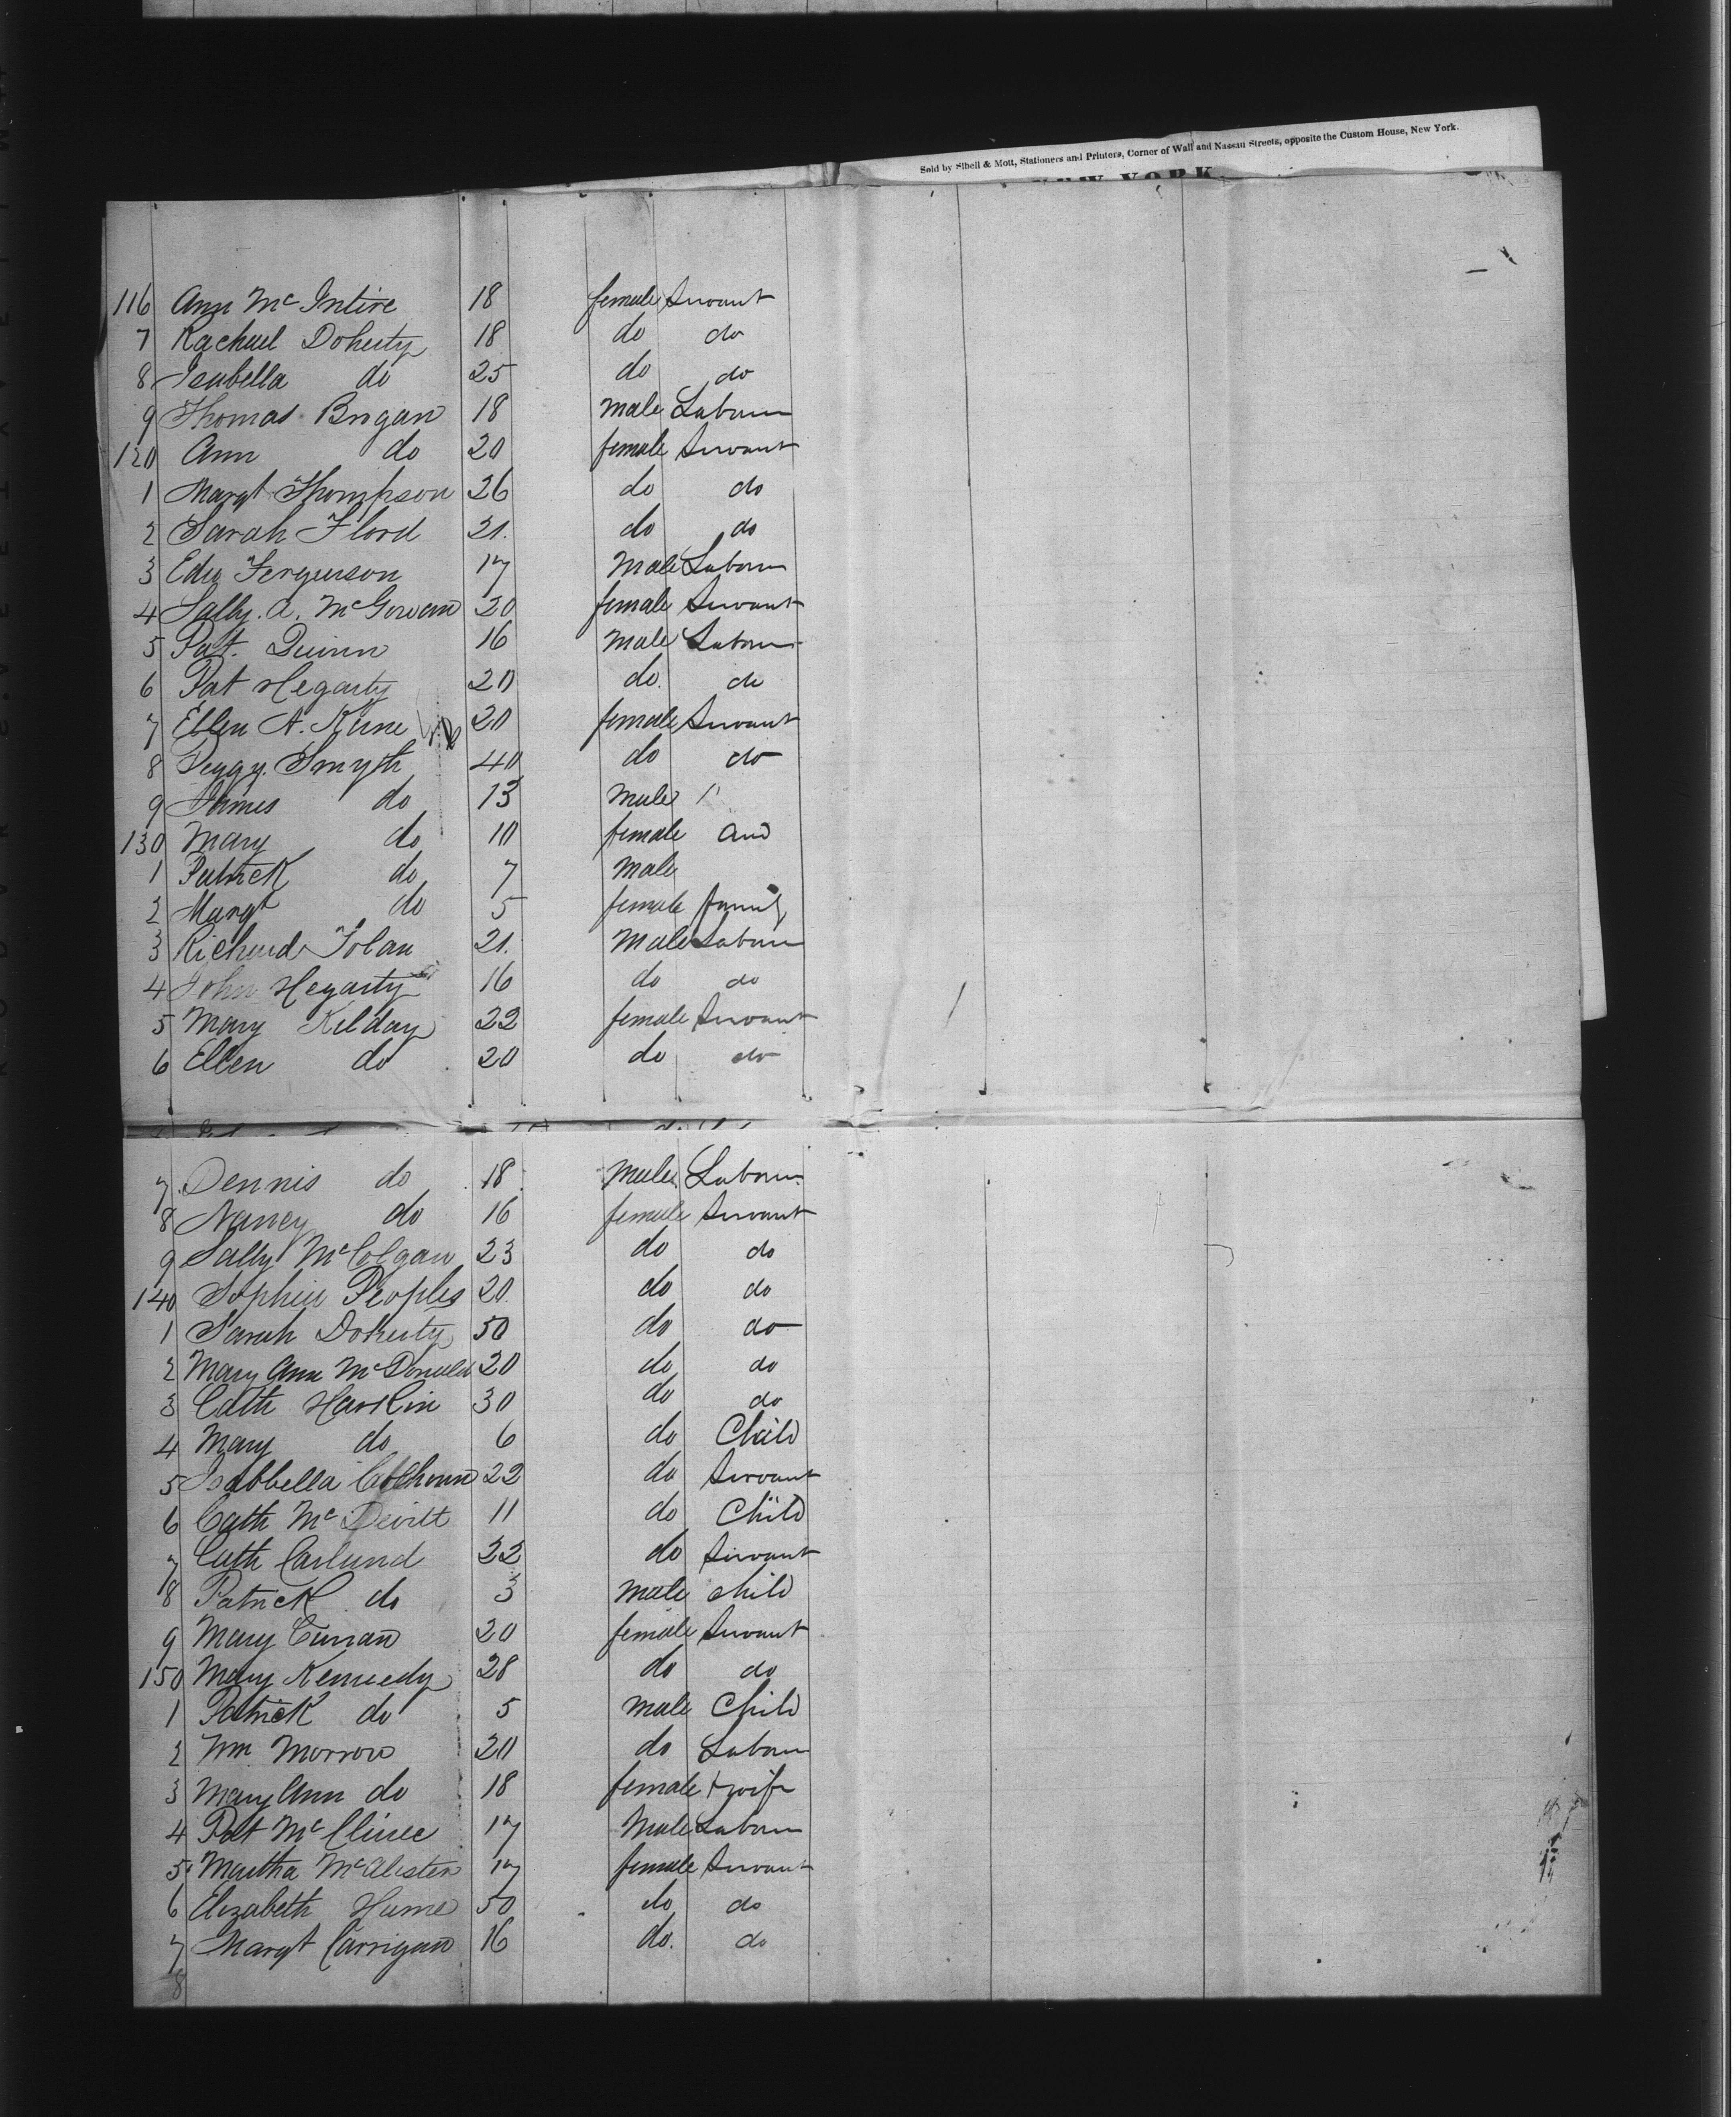 Sold by Sibell & Mott, Stationers and Printers, Corner of Wall and Nassau Streets, opposite the Custom House, New York.
NEW YORK
116 Ann Mc Intire 18 female Servant
7 Rachael Doherty 18 do do
8 Isabella do 25 do do
9 Thomas Brogan 18 Male Labourer
120 Ann do 20 female Servant
1 Margt Thompson 26 do do
2 Sarah Flord 21. do do
3 Edw Ferguson 17 Male Labourer
4 Sally. A. McGowan 20 female Servant
5 Pat. Quinn 16 Male Labourer
6 Pat Hegarty 20 do. do
7 Ellen A. Kune 20 female Servant
8 Peggy. Smyth 40 do do
9 James do 13 Male "
130 Mary do 10 female and
1 Patrick do 7 Male
2 Margt do 5 female family
3 Richard Tolan 21. Male Labourer
4 John Hegarty 16 do do
5 Mary Kilday 22 female Servant
6 Ellen do 20 do do
7 Dennis do 18 Male Labourer
8 Nancy do 16 female Servant
9 Sally McColgan 23 do do
140 Sophia Peoples 20 do do
1 Sarah Doherty 50 do do
2 Mary Ann McDonald 20 do do
3 Cath Harkin 30 do do
4 Mary do 6 do Child
5 Isabbella Colhoun 22 do Servant
6 Cath Mc Devitt 11 do Child
7 Cath Carland 22 do Servant
8 Patrick do 3 male child
9 Mary Curran 20 female Servant
150 Mary Kennedy 28 do do
1 Patrick do 5 male Child
2 Wm Morrow 20 do Labourer
3 Mary Ann do 18 female & wife
4 Pat Mc Clinee 17 Male Labourer
5 Martha McAlister 17 female Servant
6 Elizabeth Hume 50 do do
7 Margt Carrigan 16 do. do
8